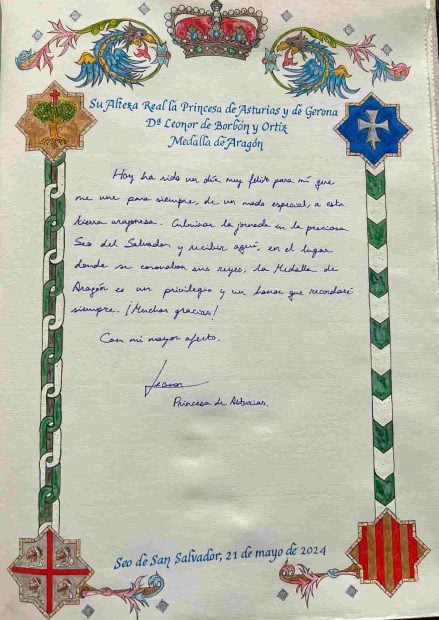 Su Alteza Real la Princesa de Asturias y de Gerona
Dª Leonor de Borbón y Ortiz
Medalla de Aragón
Hoy ha sido un día muy feliz para mí que
me une para siempre, de un modo especial, a esta
tierra aragonesa. Culminar la jornada en la preciosa
Seo del Salvador y recibir aquí, en el lugar
donde se coronaban sus reyes, la Medalla de
Aragón es un privilegio y un honor que recordaré
siempre. ¡Muchas gracias!
Con mi mayor afecto.
Leonor
Princesa de Asturias.
Seo de San Salvador, 21 de mayo de 2024